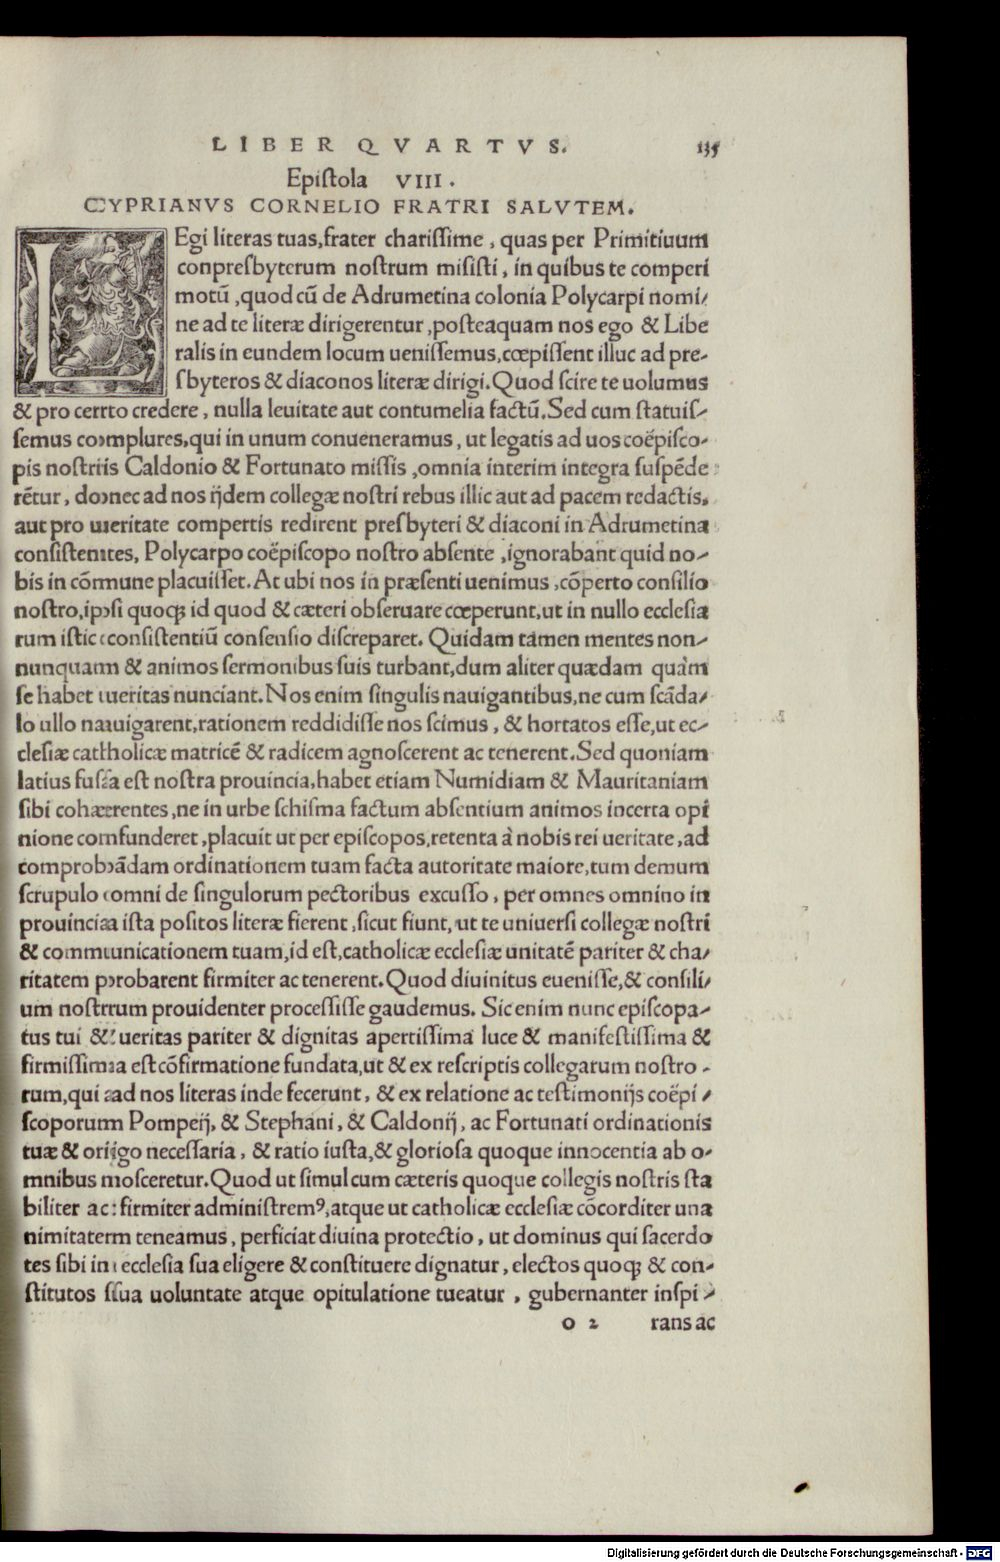 LIBER QVARTVS. 135
Epistola VIII.
CYPRIANVS CORNELIO FRATRI SALVTEM.
LEgi literas tuas, frater charissime, quas per Primitiuum
conpresbyterum nostrum misisti, in quibus te comperi
motū, quod cū de Adrumetina colonia Polycarpi nomi/
ne ad te literæ dirigerentur, posteaquam nos ego & Libe
ralis in eundem locum uenissemus, cœpissent illuc ad pre-
sbyteros & diaconos literæ dirigi. Quod scire te uolumus
& pro certo credere, nulla leuitate aut contumelia factū. Sed cum statuis/
semus complures, qui in unum conueneramus, ut legatis ad uos coëpisco-
pis nostris Caldonio & Fortunato missis, omnia interim integra suspēde
rētur, donec ad nos ijdem collegæ nostri rebus illic aut ad pacem redactis,
aut pro ueritate compertis redirent presbyteri & diaconi in Adrumetina
consistentes, Polycarpo coëpiscopo nostro absente, ignorabant quid no-
bis in cōmune placuisset. At ubi nos in præsenti uenimus, cōperto consilio
nostro, ipsi quoqꝫ id quod & cæteri obseruare cœperunt, ut in nullo ecclesia
rum istic consistentiū consensio discreparet. Quidam tamen mentes non-
nunquam & animos sermonibus suis turbant, dum aliter quædam quàm
se habet ueritas nunciant. Nos enim singulis nauigantibus, ne cum scāda/
lo ullo nauigarent, rationem reddidisse nos scimus, & hortatos esse, ut ec-
clesiæ catholicæ matricē & radicem agnoscerent ac tenerent. Sed quoniam
latius fusa est nostra prouincia, habet etiam Numidiam & Mauritaniam
sibi cohærentes, ne in urbe schisma factum absentium animos incerta opi
nione confunderet, placuit ut per episcopos, retenta à nobis rei ueritate, ad
comprobādam ordinationem tuam facta autoritate maiore, tum demum
scrupulo omni de singulorum pectoribus excusso, per omnes omnino in
prouincia ista positos literæ fierent, sicut fiunt, ut te uniuersi collegæ nostri
& communicationem tuam, id est, catholicæ ecclesiæ unitatē pariter & cha/
ritatem probarent firmiter ac tenerent. Quod diuinitus euenisse, & consili/
um nostrum prouidenter processisse gaudemus. Sic enim nunc episcopa-
tus tui & ueritas pariter & dignitas apertissima luce & manifestissima &
firmissima est cōfirmatione fundata, ut & ex rescriptis collegarum nostro-
rum, qui ad nos literas inde fecerunt, & ex relatione ac testimonijs coëpi/
scoporum Pompeij, & Stephani, & Caldonij, ac Fortunati ordinationis
tuæ & origo necessaria, & ratio iusta, & gloriosa quoque innocentia ab o-
mnibus nosceretur. Quod ut simul cum cæteris quoque collegis nostris sta
biliter ac firmiter administremꝰ, atque ut catholicæ ecclesiæ cōcorditer una
nimitatem teneamus, perficiat diuina protectio, ut dominus qui sacerdo
tes sibi in ecclesia sua eligere & constituere dignatur, electos quoqꝫ & con-
stitutos sua uoluntate atque opitulatione tueatur, gubernanter inspi-
o 2 rans ac
Digitalisierung gefördert durch die Deutsche Forschungsgemeinschaft - DFG